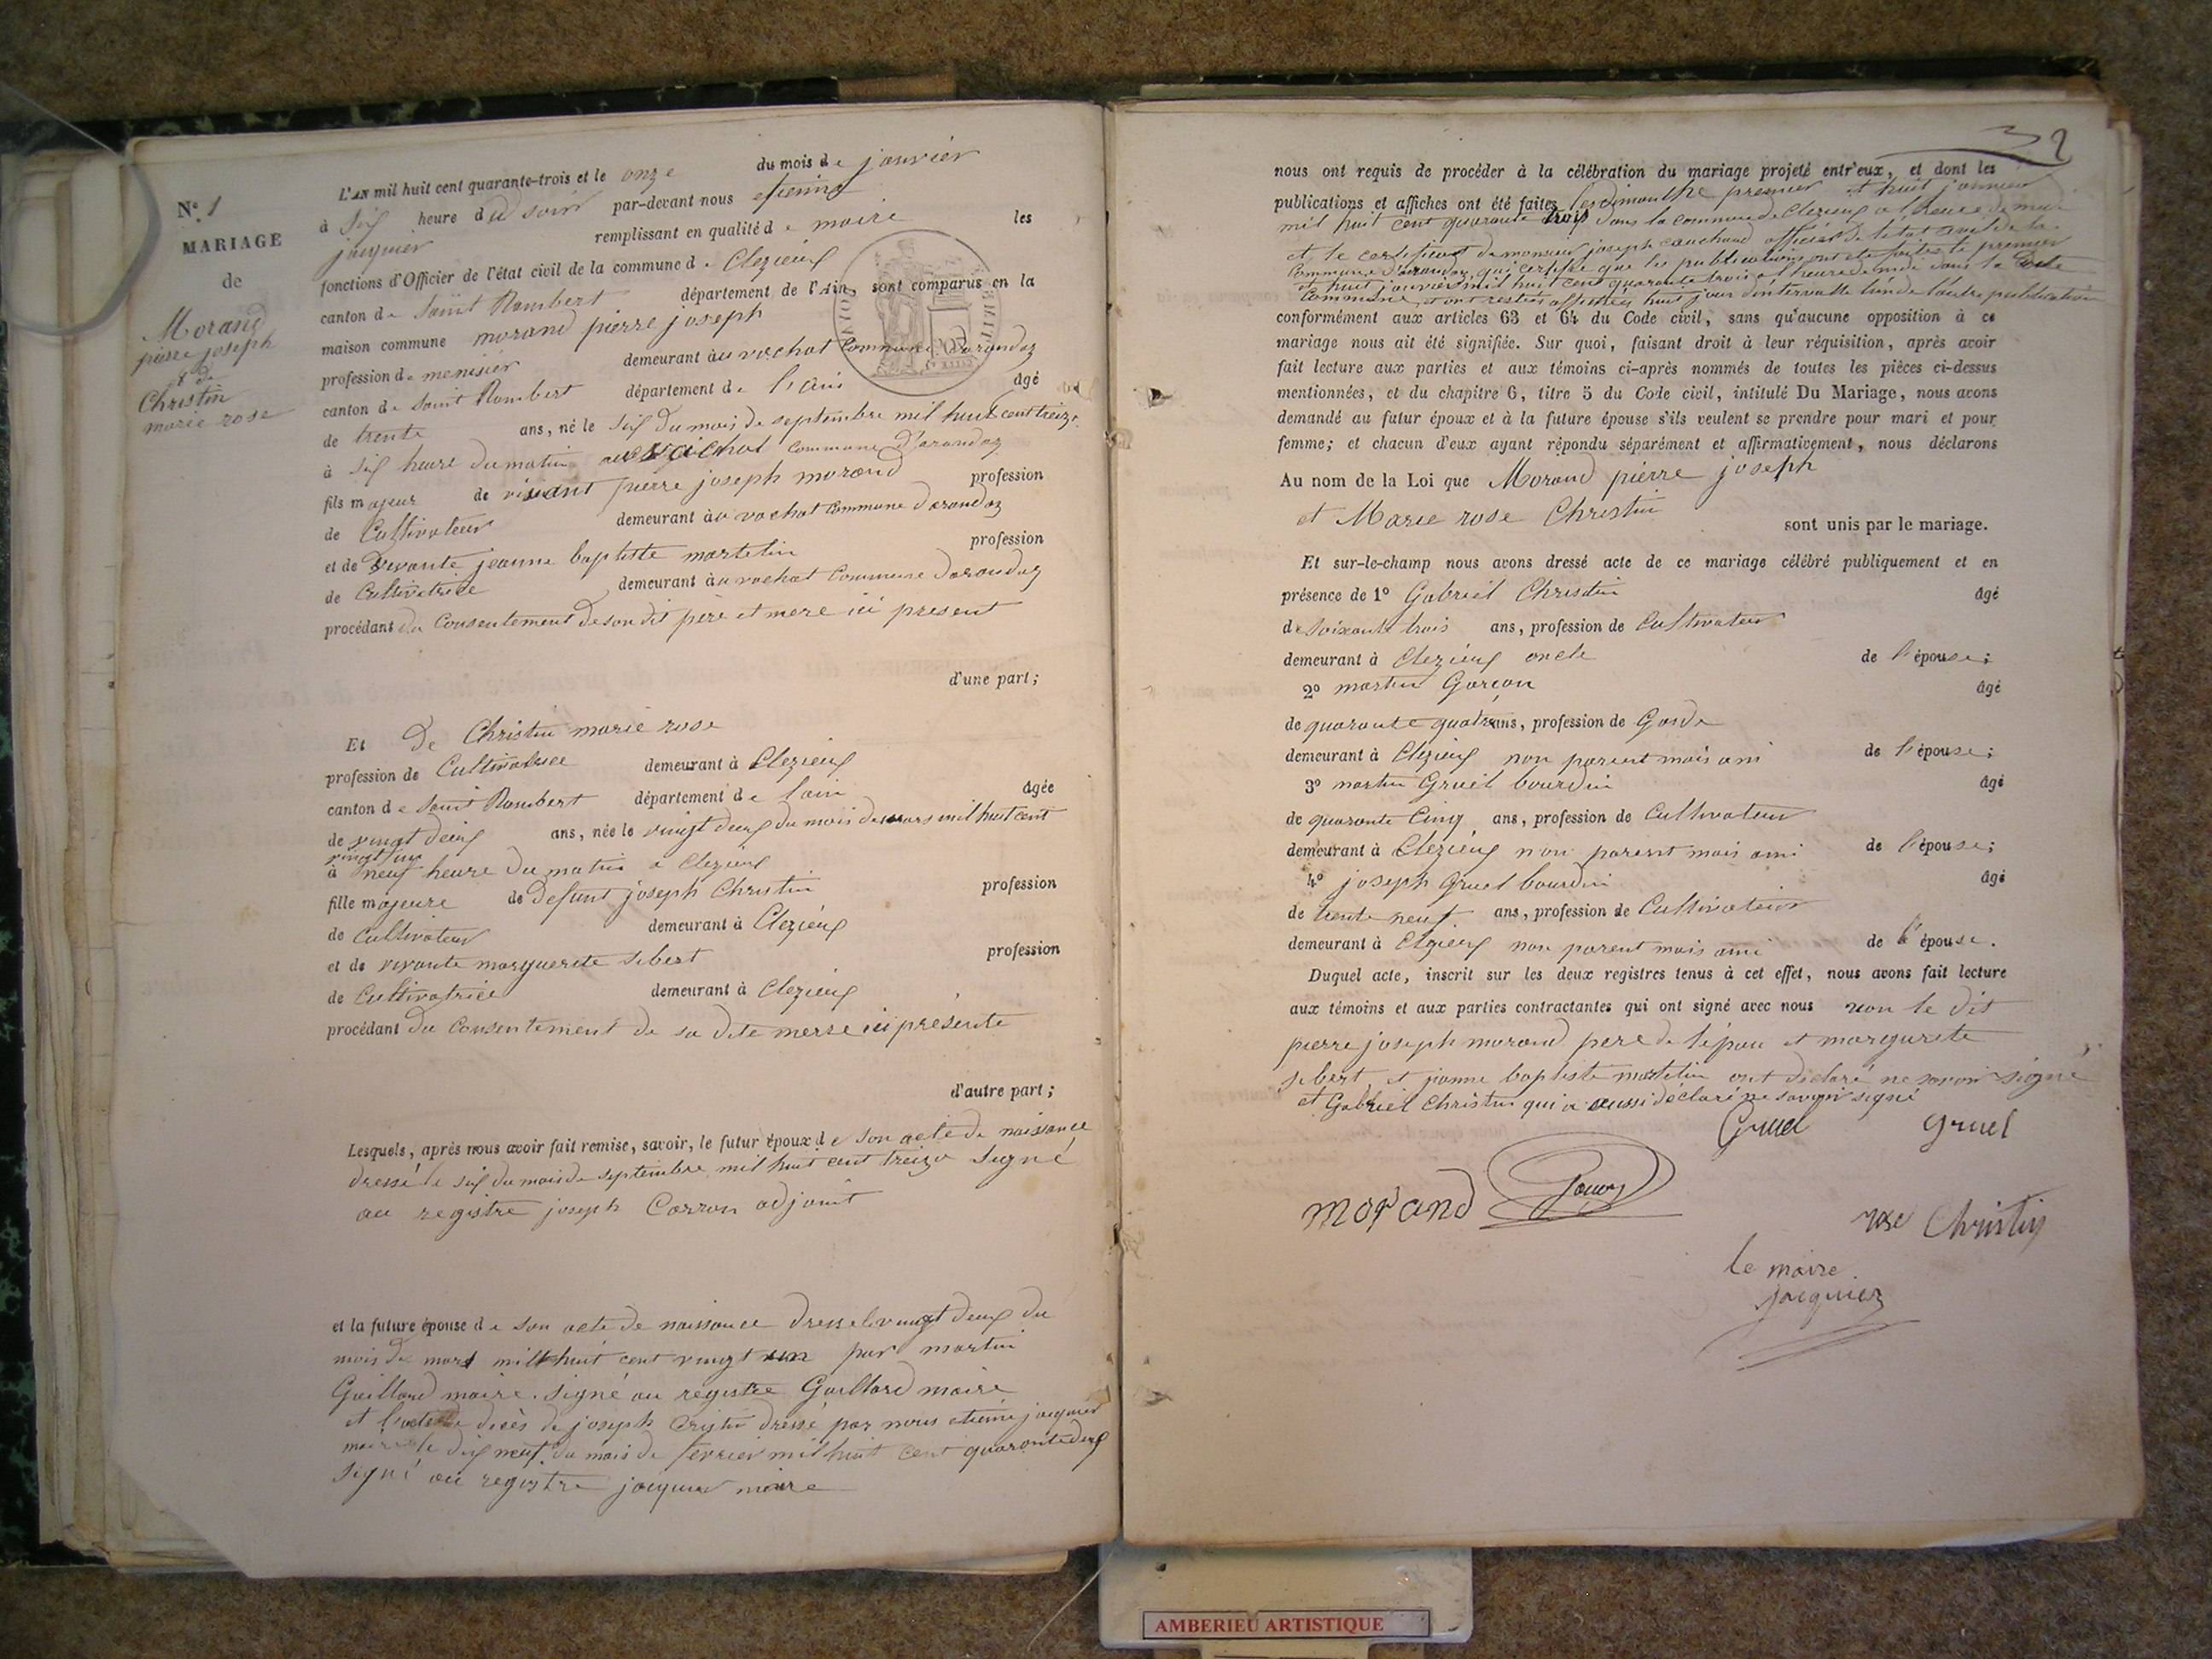 N.° 1
MARIAGE
de
Morand
pierre joseph
& de
Christin
marie rose
L'AN mil huit cent quarante-trois et le onze du mois de janvier
à six heure du soir par-devant nous etienne
jaquier remplissant en qualité de maire les
fonctions d'Officier de l'état civil de la commune de Clezieux
canton de Saint Rambert département de l'Ain, sont comparus en la
maison commune morand pierre joseph
profession de menisier demeurant au vachat Commune D'arandaz
canton de Saint Rambert département de l'ain âgé
de trente ans, né le six du mois de septembre mil huit cent treize
à six heure du matin au vachat Commune D'arandaz
fils majeur de vivant pierre joseph morand profession
de Cultivateur demeurant au vachat Commune Darandaz
et de vivante jeanne baptiste martelin profession
de Cultivatrice demeurant au vachat Commune Darandaz
procédant du Consentement de son dit père et mere ici present
d'une part;
Et De Christin marie rose
profession de Cultivatrice demeurant à Clezieux
canton de Saint Rambert département de l'ain âgée
de vingt deux ans, née le vingt deux du mois de mars mil huit cent
vingt un
à neuf heure du matin a Clezieux
fille majeure de Defunt joseph Christin profession
de Cultivateur demeurant à Clezieux
et de vivante marguerite sebert profession
de Cultivatrice demeurant à Clezieux
procédant du Consentement de sa dite merre ici présente
d'autre part;
Lesquels, après nous avoir fait remise, savoir, le futur époux de son acte de naissance
dressé le six du mois de septembre mil huit cent treize signé
au registre joseph Carron adjoint
et la future épouse de son acte de naissance dressé le vingt deux du
mois de mars mil huit cent vingt un par martin
Gaillard maire. signé au registre Gaillard maire
et l'acte de decès de joseph Cristin dressé par nous etienne jaquier
maire le dix neuf du mois de fevrier mil huit cent quarante deux
signé au registre jaquier maire
2
nous ont requis de procéder à la célébration du mariage projeté entr'eux, et dont les
publications et affiches ont été faites les dimanche premier et huit janvier
mil huit cent quarante trois dans la commune de Clezieux a l'heure de midi
et le certificat de monsieur joseph cauchand officier de l'etat civil de la
Commune d'arandaz qui certifie que les publications ont été faites le premier
et huit janvier mil huit cent quarante trois a l'heure de midi dans la dite
Commune, et ont restées affichées huit jour d'intervalle l'un de l'autre publication
conformément aux articles 63 et 64 du Code civil, sans qu'aucune opposition à ce
mariage nous ait été signifiée. Sur quoi, faisant droit à leur réquisition, après avoir
fait lecture aux parties et aux témoins ci-après nommés de toutes les pièces ci-dessus
mentionnées, et du chapitre 6, titre 5 du Code civil, intitulé Du Mariage, nous avons
demandé au futur époux et à la future épouse s'ils veulent se prendre pour mari et pour
femme; et chacun d'eux ayant répondu séparément et affirmativement, nous déclarons
Au nom de la Loi que Morand pierre joseph
et Marie rose Christin sont unis par le mariage.
Et sur-le-champ nous avons dressé acte de ce mariage célébré publiquement et en
présence de 1° Gabriel Christin âgé
de soixante trois ans, profession de Cultivateur
demeurant à Clezieux oncle de l'épouse;
2° martin Garçon âgé
de quarante quatre ans, profession de Garde
demeurant à Clezieux non parent mais ami de l'épouse;
3° martin Gruel bourdin âgé
de quarante Cinq ans, profession de Cultivateur
demeurant à Clezieux non parent mais ami de l'épouse;
4° joseph Gruel bourdin âgé
de trente neuf ans, profession de Cultivateur
demeurant à Clezieux non parent mais ami de l'épouse.
Duquel acte, inscrit sur les deux registres tenus à cet effet, nous avons fait lecture
aux témoins et aux parties contractantes qui ont signé avec nous non le dit
pierre joseph morand pere de l'épou et margurete
sebert, et janne baptiste martelin ont déclaré ne savoir signé
et Gabriel Christin qui a aussi déclaré ne savoir signé
Gruel Gruel
morand
rose Christin
le maire
jaquier
AMBERIEU ARTISTIQUE